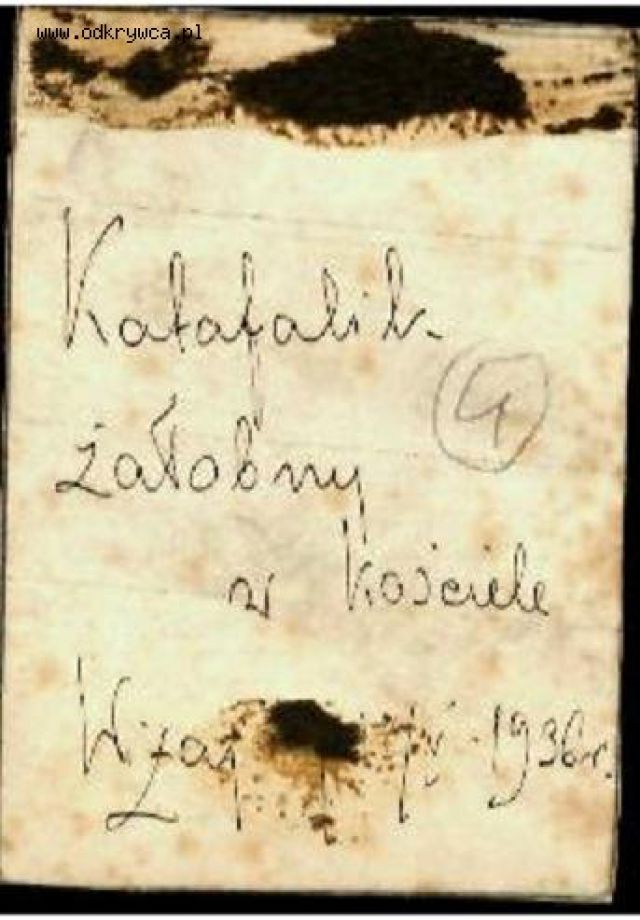 www.odkrywca.pl
Katafalik
4
żałobny
w Kościele
1936r.